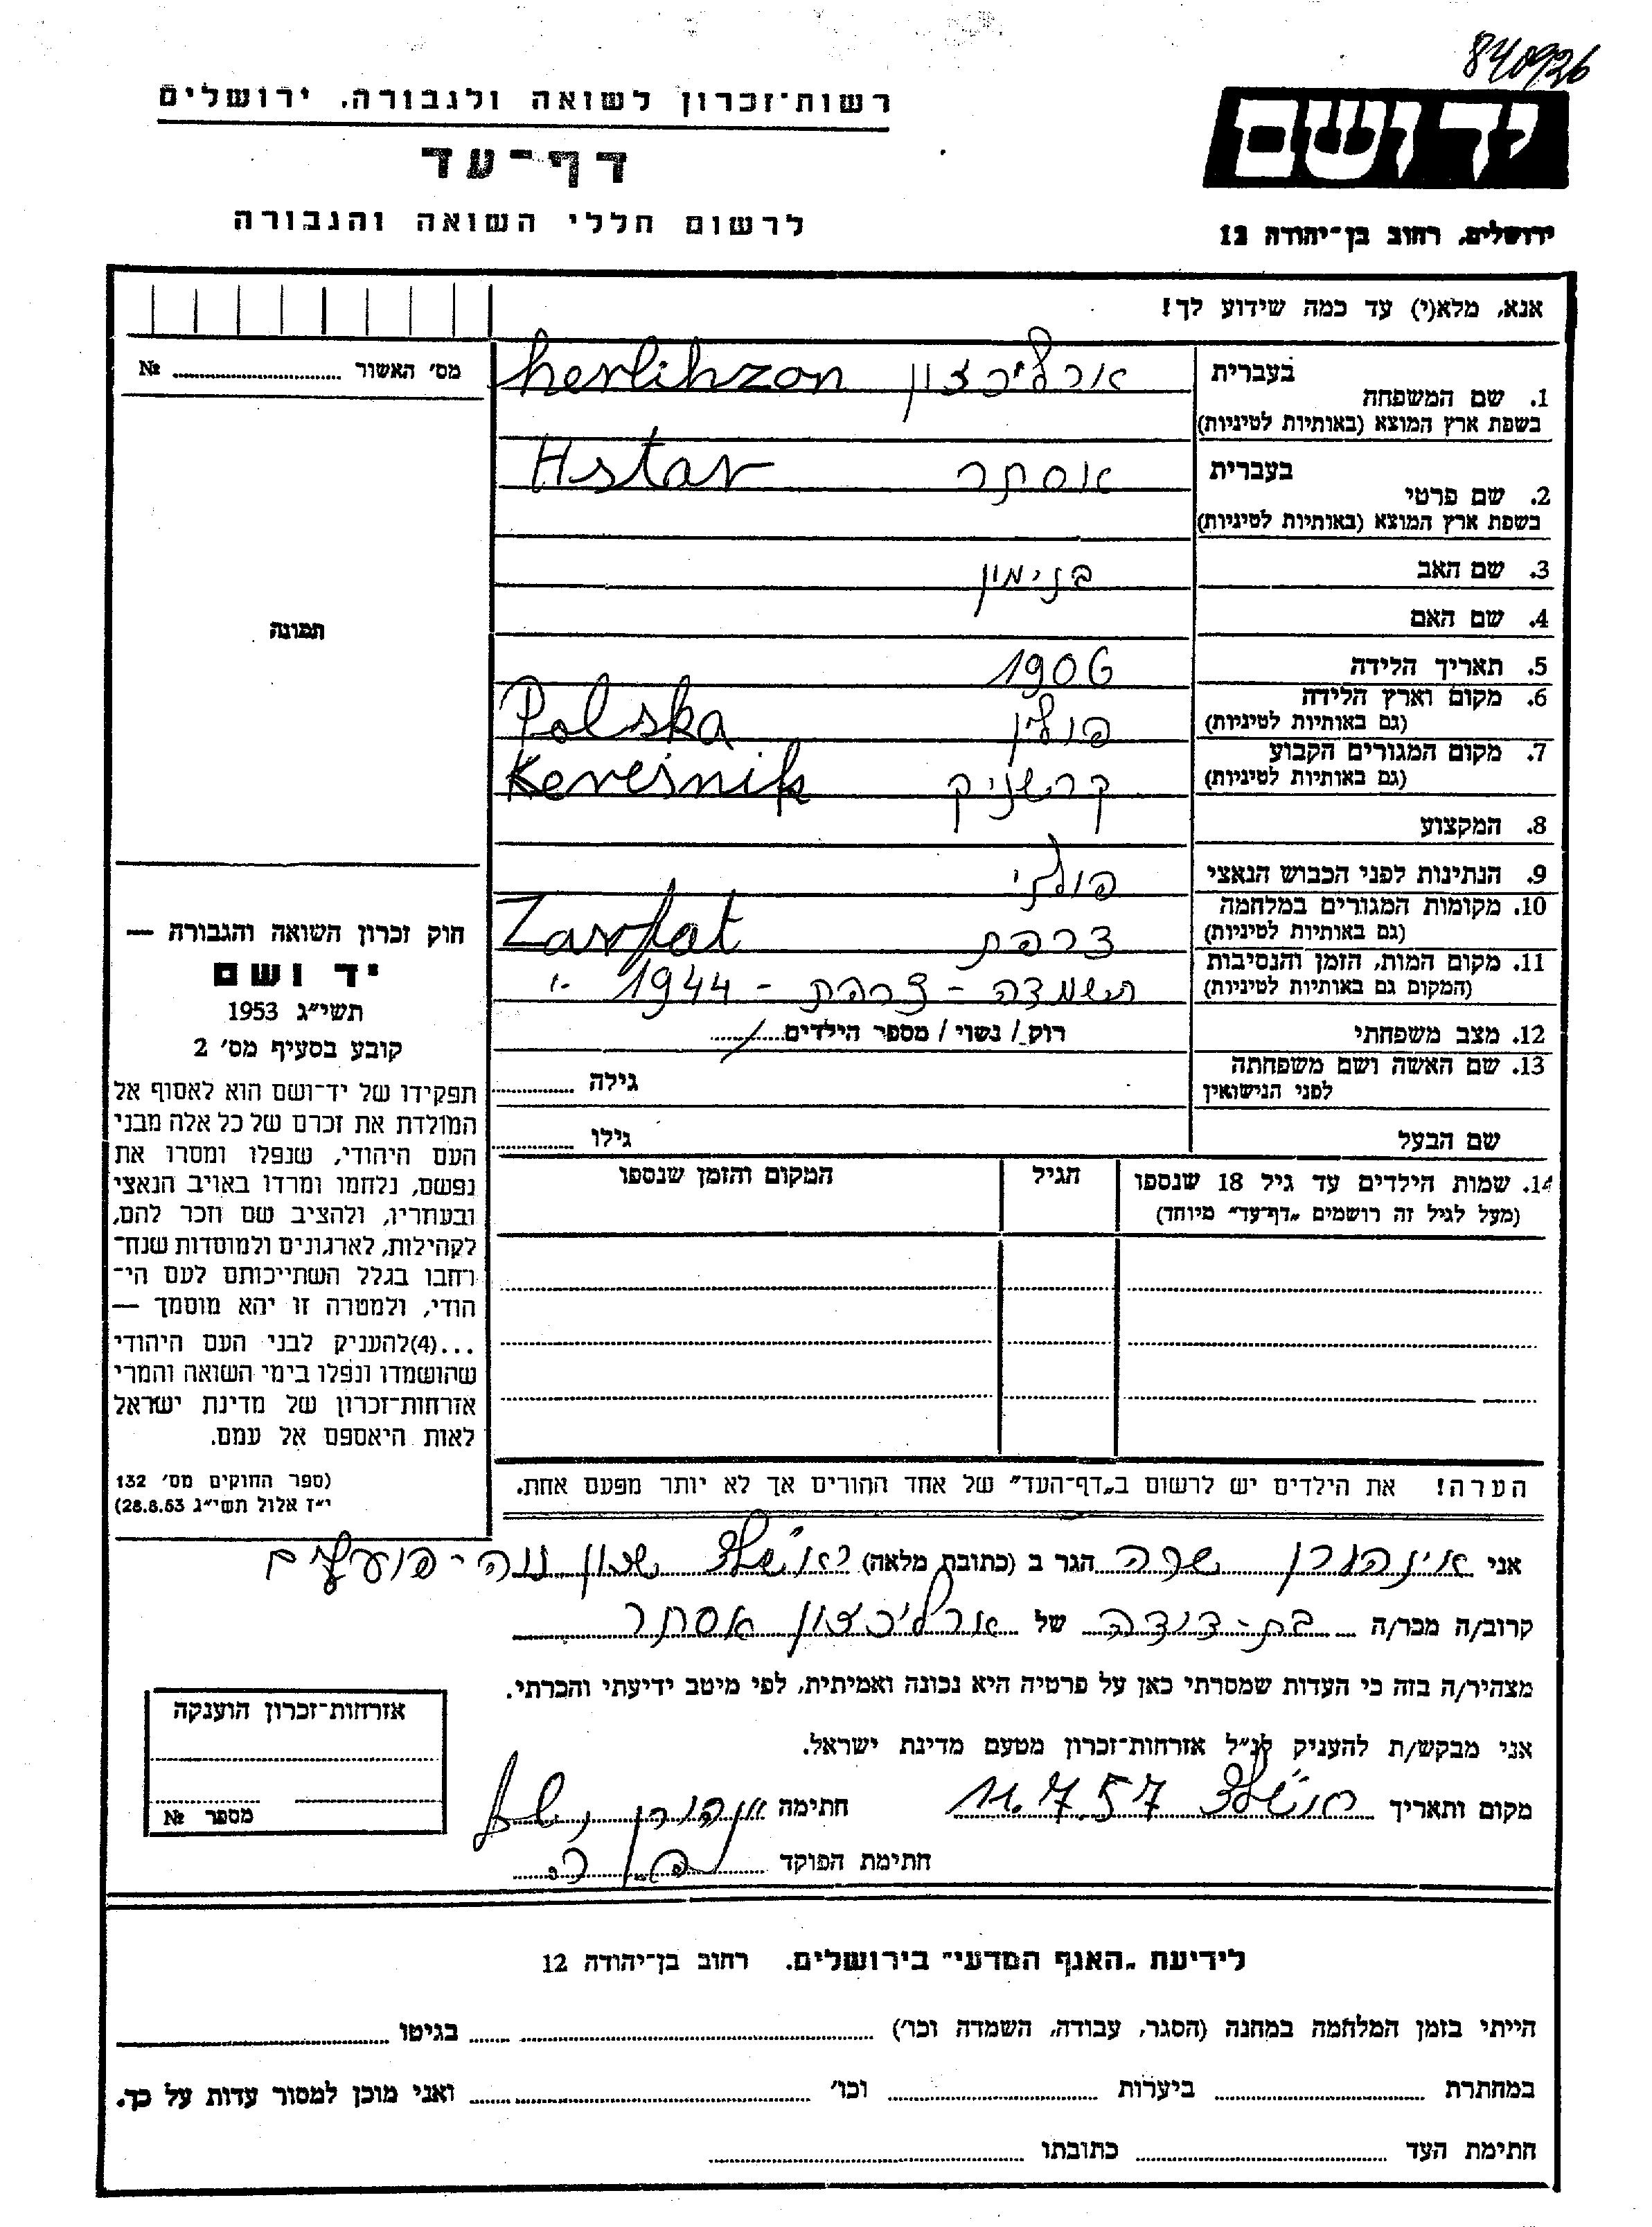 840926
רשות־זכרון לשואה ולגבורה, ירושלים
יד ושם
דף־עד
לרשום חללי השואה והגבורה
ירושלים, רחוב בן־יהודה 12
אנא, מלא(י) עד כמה שידוע לך!
מס' האשור № 
בעברית
1. שם המשפחה
בשפת ארץ המוצא (באותיות לטיניות)
ארליכצון herlihzon
בעברית
2. שם פרטי
בשפת ארץ המוצא (באותיות לטיניות)
אסתר Hstar
3. שם האב בנימין
4. שם האם
תמונה
5. תאריך הלידה 1906
6. מקום וארץ הלידה
(גם באותיות לטיניות)
פולין Polska
7. מקום המגורים הקבוע
(גם באותיות לטיניות)
קרשניק Kereśnik
8. המקצוע
9. הנתינות לפני הכבוש הנאצי פולני
10. מקומות המגורים במלחמה
(גם באותיות לטיניות)
צרפת Zarfat
11. מקום המות, הזמן והנסיבות
(המקום גם באותיות לטיניות)
הושמדה - צרפת - 1944
12. מצב משפחתי רוק / נשוי / מספר הילדים
13. שם האשה ושם משפחתה
לפני הנישואין
גילה
שם הבעל גילו
14. שמות הילדים עד גיל 18 שנספו
(מעל לגיל זה רושמים „דף־עד" מיוחד)
הגיל
המקום והזמן שנספו
חוק זכרון השואה והגבורה —
יד ושם
תשי"ג 1953
קובע בסעיף מס' 2
תפקידו של יד־ושם הוא לאסוף אל
המולדת את זכרם של כל אלה מבני
העם היהודי, שנפלו ומסרו את
נפשם, נלחמו ומרדו באויב הנאצי
ובעוזריו, ולהציב שם וזכר להם,
לקהילות, לארגונים ולמוסדות שנח־
רבו בגלל השתייכותם לעם הי־
הודי, ולמטרה זו יהא מוסמך —
...(4)להעניק לבני העם היהודי
שהושמדו ונפלו בימי השואה והמרי
אזרחות־זכרון של מדינת ישראל
לאות היאספם אל עמם.
(ספר החוקים מס' 132
י"ז אלול תשי"ג 28.8.53)
הערה! את הילדים יש לרשום ב„דף־העד" של אחד ההורים אך לא יותר מפעם אחת.
אני אינהורן שרה הגר ב (כתובת מלאה) שכון נוה-פועלים
קרוב/ה מכר/ה בת-דודה של ארליכצון אסתר
מצהיר/ה בזה כי העדות שמסרתי כאן על פרטיה היא נכונה ואמיתית, לפי מיטב ידיעתי והכרתי.
אני מבקש/ת להעניק לנ"ל אזרחות־זכרון מטעם מדינת ישראל.
מקום ותאריך 11.7.57 חתימה
חתימת הפוקד
אזרחות־זכרון הוענקה
מספר №
לידיעת „האגף המדעי" בירושלים. רחוב בן־יהודה 12
הייתי בזמן המלחמה במחנה (הסגר, עבודה, השמדה וכו') בגיטו
במחתרת ביערות וכו' ואני מוכן למסור עדות על כך.
חתימת העד כתובתו